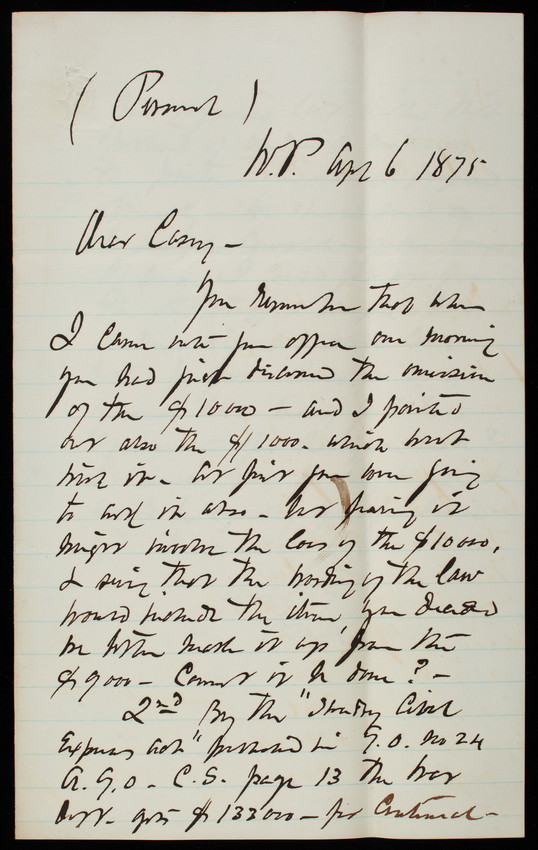 ( Personal )
W.P. Apl 6 1875
Dear Casey -
You remember that when
I came into your office one morning
you had just discovered the omission
of the $10000 - and I pointed
out also the $1000 - which went
with it - At first you were going
to add it also - but fearing it
might involve the loss of the $10000,
& seeing that the wording of the law
would include the item, you decided
we better make it up from the
$9000 - Cannot it be done? -
2nd By the "Sundry Civil
Expenses act" published in G.O. no 24
A.G.O. - C.S. page 13 the War
Dept. gets $133000 - for Continued -